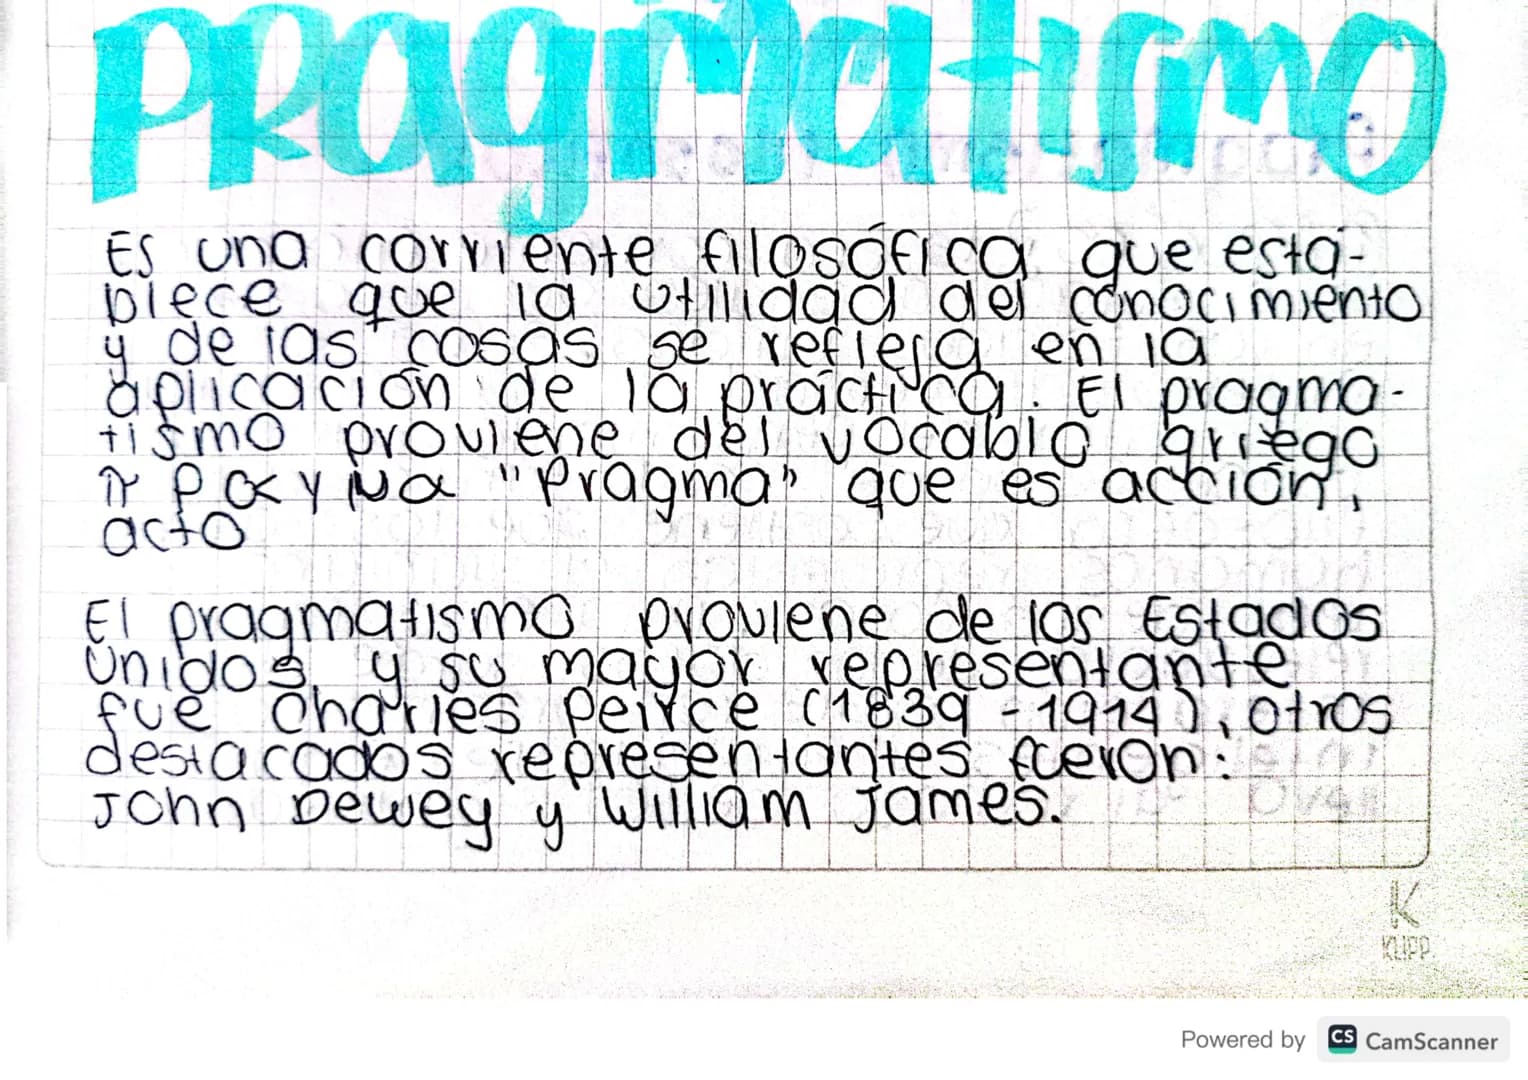 PRagmatismo
Es una corriente filosófica que está-
blece que la utilidad del conocimiento
y de las cosas se refleja en la
aplicación de la práctica. El pragma-
tismo proviene del vocablo griego
πραγμα "Pragma" que es acción,
acto
El pragmatismo proviene de los Estados
Unidos y su mayor representante
fue Charles Peirce (1839 - 1914), otros
destacados representantes fueron:
John Dewey y William James.
K
KLIPP
Powered by CS CamScanner